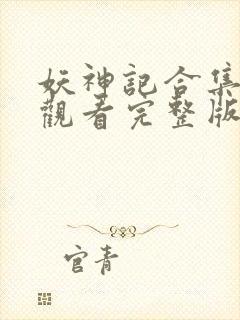 妖神記合集
觀看完整版
官青